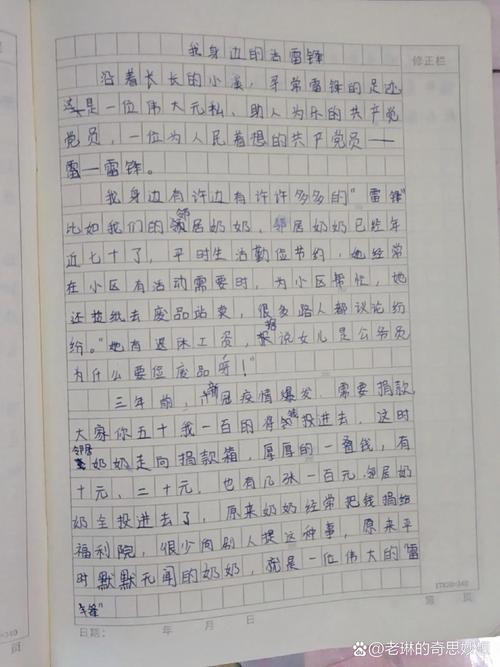 我身边的活雷锋
修正栏
沿着长长的小溪，寻常雷锋的足迹
这是一位伟大无私、助人为乐的共产党
党员，一位为人民着想的共产党员——
雷—雷锋。
我身边有许边有许许多多的"雷锋"
比如我们的邻居奶奶，邻居奶奶已经年
近七十了，平时生活勤俭节约，她经常
在小区有活动需要时，为小区帮忙，她
还捡纸去废品站卖，很多路人都议论纷
纷。"她有退休工资，据说女儿是公务员
为什么要捡废品呀！"
三年前，新冠疫情爆发，需要捐款
大家你五十我一百的将钱投进去，这时
邻居奶奶走向捐款箱，厚厚的一叠钱，有
十元、二十元，也有几张一百元，邻居奶
奶全投进去了，原来奶奶经常把钱捐给
福利院，很少向别人提这种事，原来平
时默默无闻的奶奶，就是一位伟大的"雷
锋"
17X20=340
日期： 年 月 日
第 页
=340
百家号/老琳的奇思妙想